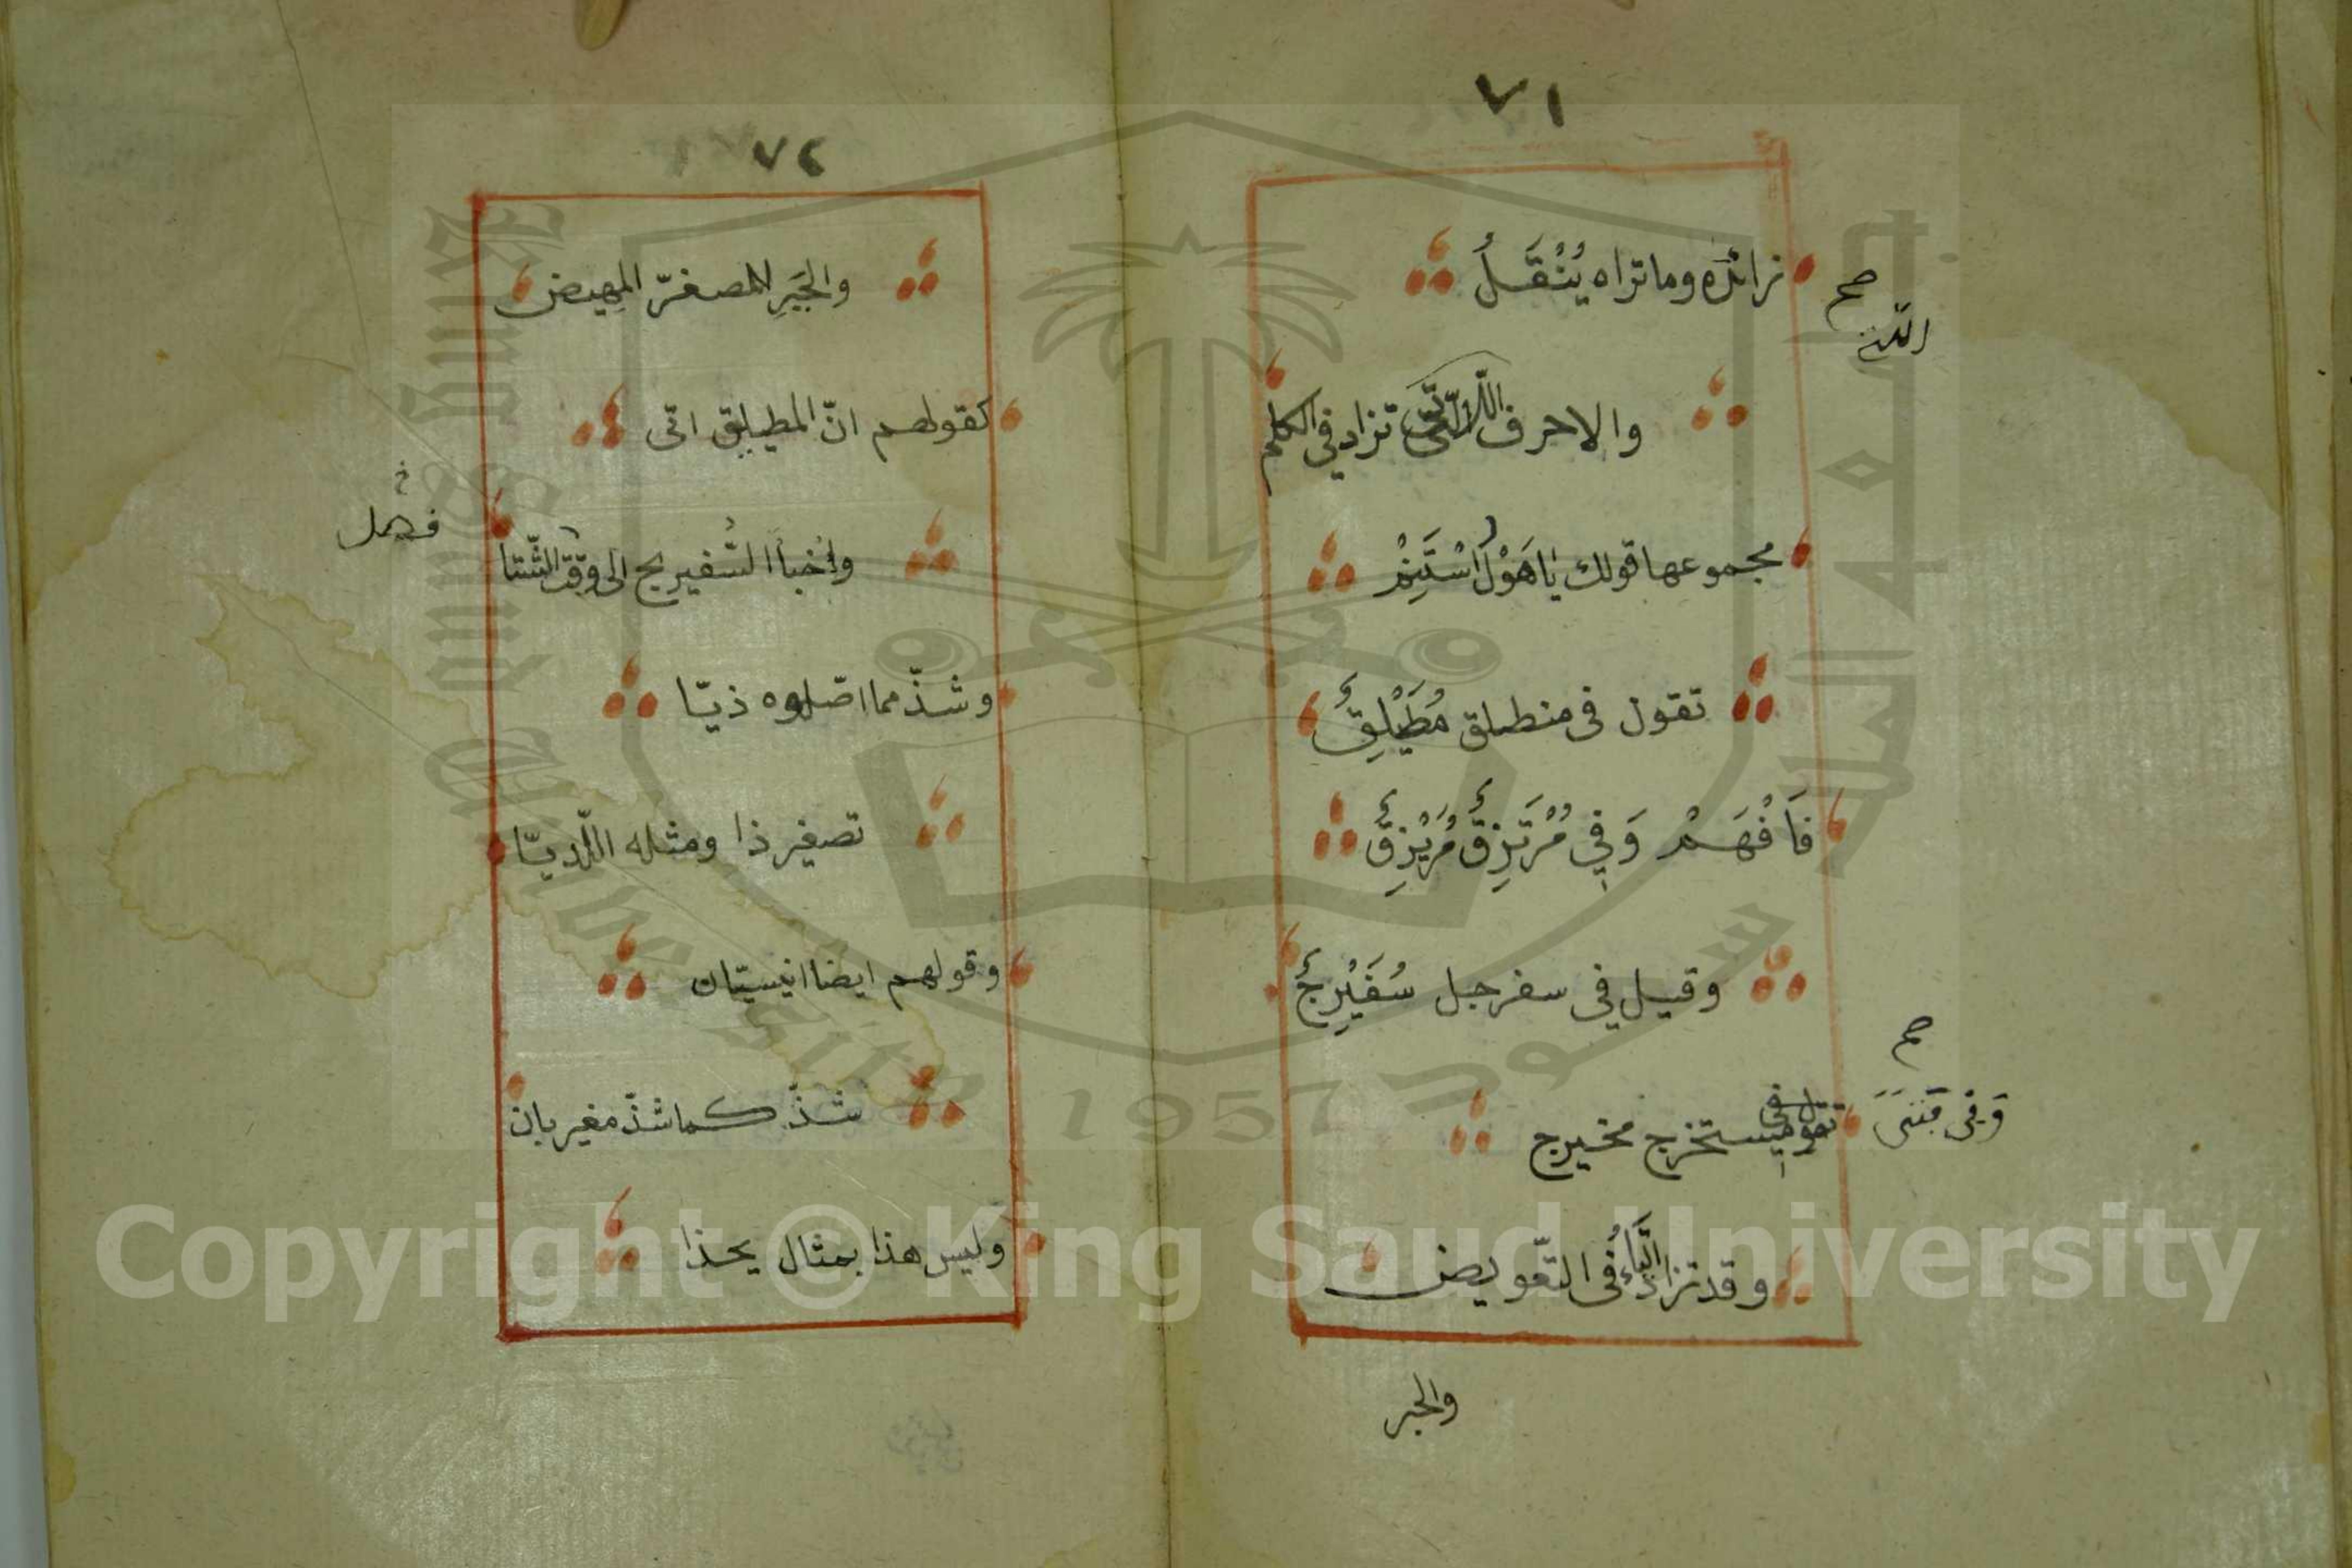 ٧١
زائده وما تراه يُثْقَلُ
صح
والاحرف اللاتي تزاد في الكلم
مجموعها قولك يَا هَوْلُ اسْتَنِمْ
تقول في منطلق مُطَيْلِقٌ
فَافْهَمْ وَفِي مُرْتَزِقٌ مُرَيْزِقٌ
وقيل في سفرجل سُفَيْرِجٌ
صح
تقول في مستخرج مخيرج
وقد تزاد الْيَاءُ في التّعويض
والجبر
٧٢
والجَبَرِ للمصغرّ المهيض
كقولهم انّ المطيليق اتى
واخبأ السُّفيريج الى وقت الشّتا
وشذّ مما اصّلوه ذيّا
تصغير ذا ومثله اللّذيّا
وقولهم ايضا انيسيّان
شذّ كما شذّ مغيربان
وليس هذا بمثال يحذا
Copyright © King Saud University
1957